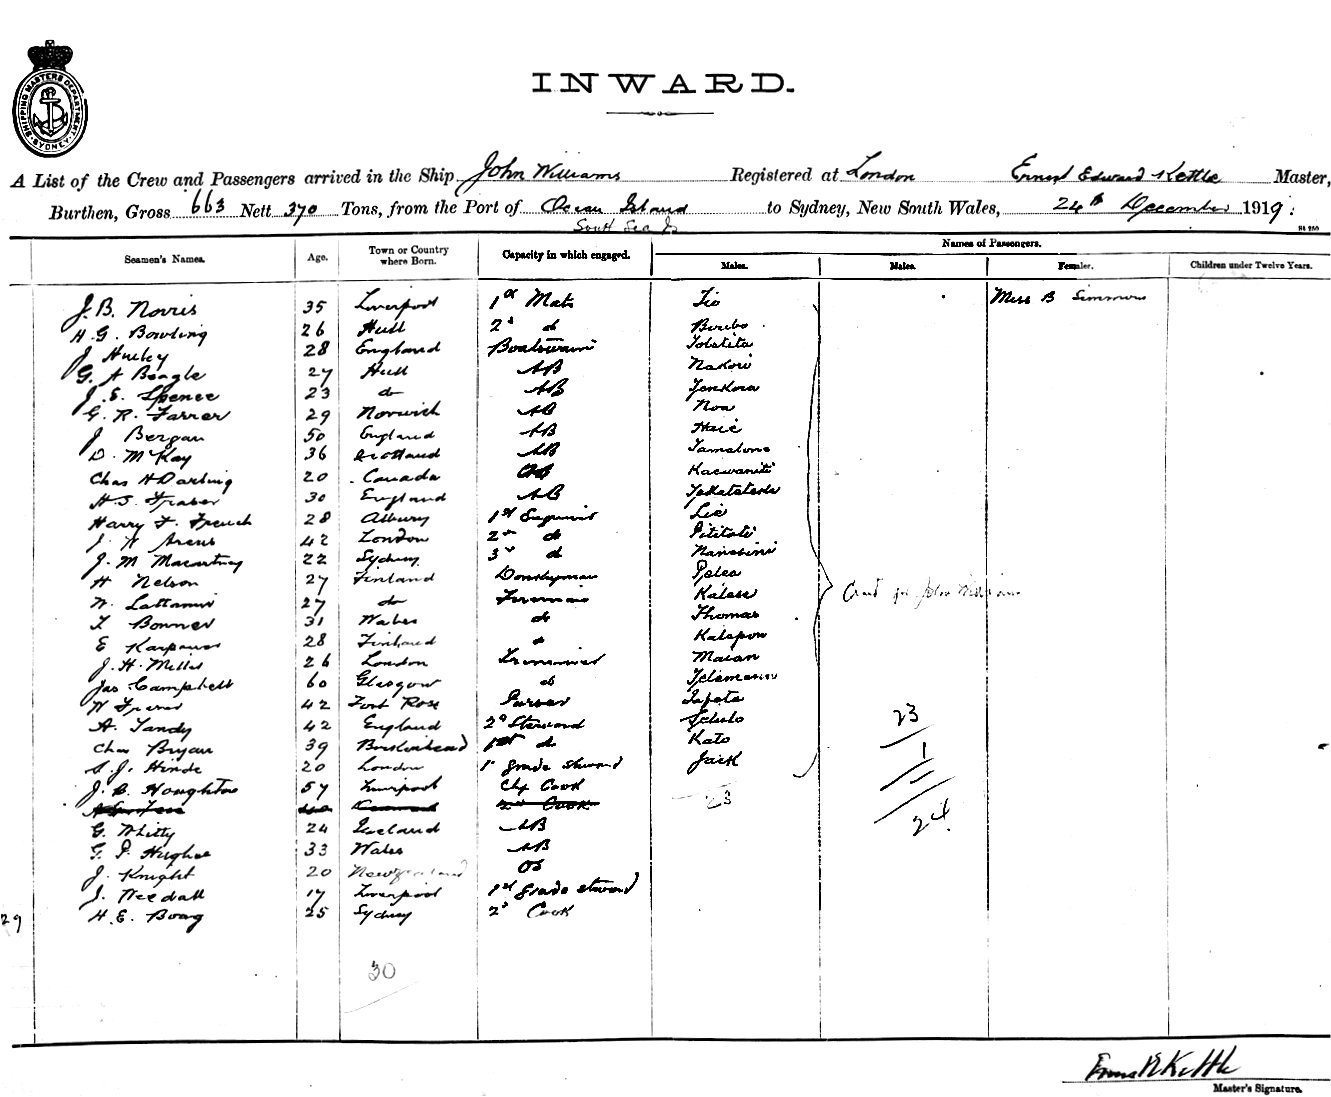 SHIPPING MASTERS DEPARTMENT SYDNEY
INWARD.
A List of the Crew and Passengers arrived in the Ship John Williams Registered at London Ernest Edward Kettle Master,
Burthen, Gross 663 Nett 370 Tons, from the Port of Ocean Island to Sydney, New South Wales, 24th December 1919.
South Sea Is
Names of Passengers.
Seamen's Names. Age. Town or Country where Born. Capacity in which engaged. Males. Males. Females. Children under Twelve Years.
J. B. Norris 35 Liverpool 1st Mate Tio Miss B Simmons
H. G. Bowling 26 Hull 2d do Beribo
J Hurley 28 England Boatswain
G. A Beagle 27 Hull AB Nakori
J. E. Spence 23 do AB
G. R. Farrer 29 Norwich AB Noa
J Bergan 50 England AB
D. McKay 36 Scotland AB
Chas H Darling 20 Canada AB
H. S. Fraser 30 England AB
Harry F. French 28 Albury 1st Engineer
42 London 2nd do Pititoli
J. M Macartney 22 Sydney 3rd do
H Nelson 27 Finland Donkeyman
27 do Fireman
F Bonner 31 Wales do Thomas
E 28 Finland do Kalapou
J. H. Miller 26 London Trimmer
Jas Campbell 60 Glasgow do
42 Fort Rose Purser
A. Tandy 42 England 2d Steward
Chas Bryan 39 Birkenhead 1st do Kato
S. J. Hinde 20 London 1st grade steward Jack
J. B. Houghton 57 Liverpool Chf Cook 23
2nd Cook
G. Whitty 24 Ireland AB
G. P. Hughes 33 Wales AB
J. Knight 20 Newzealand OS
J. Needall 17 Liverpool 1st grade steward
29 H. E. Boag 25 Sydney 2d Cook
30
23
1
24
Ernest E Kettle
Master's Signature.